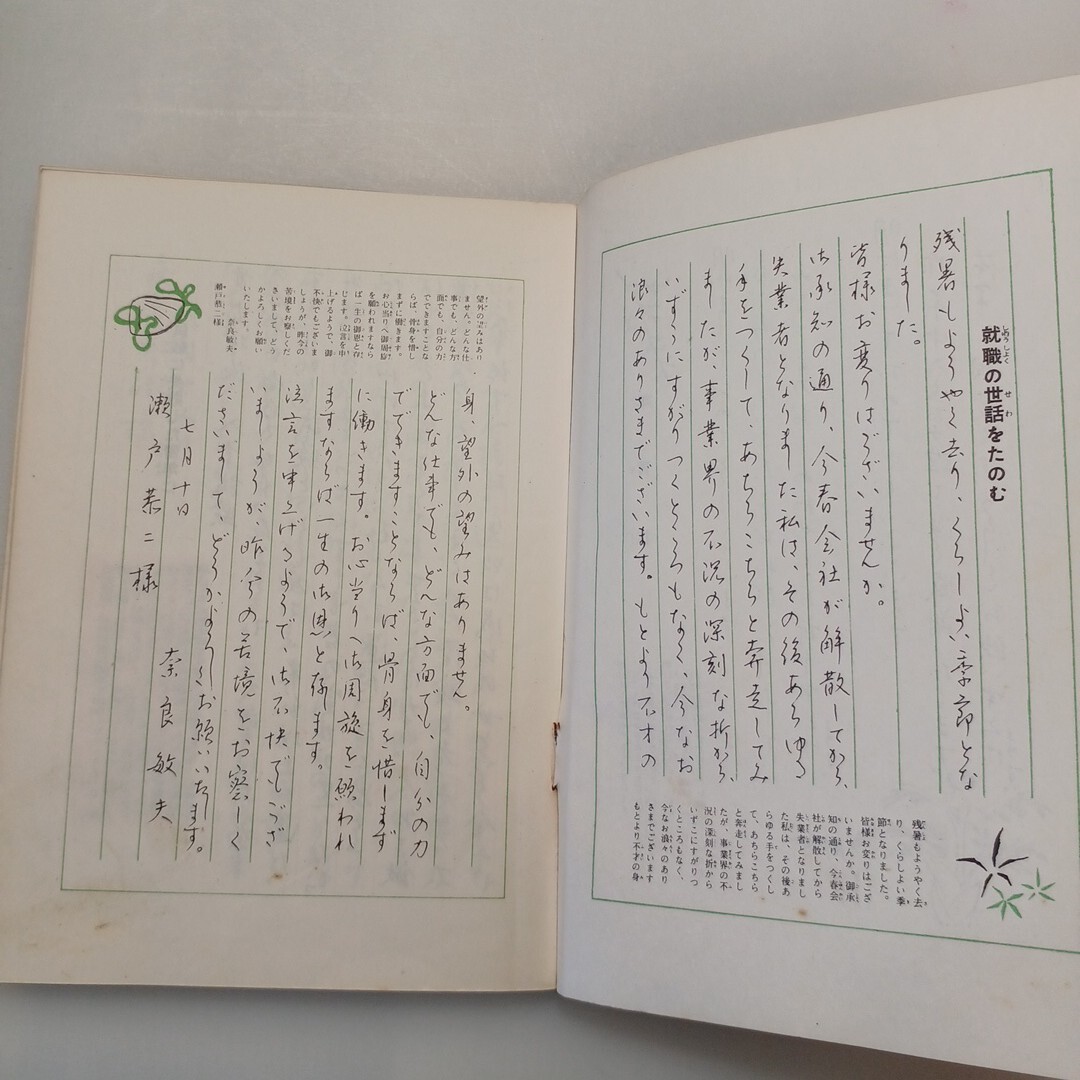 就職の世話をたのむ
しゅうしょく せわ
残暑もようやく去り、くらしよい季節とな
りました。
皆様お変りはございませんか。
御承知の通り、今春会社が解散してから、
失業者となりました私は、その後あらゆる
手をつくして、あちらこちらと奔走してみ
ましたが、事業界の不況の深刻な折から、
いずこにすがりつくところもなく、今なお
浪々のありさまでございます。もとより不才の
残暑もようやく去
り、くらしよい季
節となりました。
皆様お変りはござ
いませんか。御承
知の通り、今春会
社が解散してから
失業者となりまし
た私は、その後あ
らゆる手をつくし
て、あちらこちら
と奔走してみまし
たが、事業界の不
況の深刻な折から
いずこにすがりつ
くところもなく、
今なお浪々のあり
さまでございます
もとより不才の身
望外の望みはあり
ません。どんな仕
事でも、どんな方
面でも、自分の力
でできますことな
らば、骨身を惜し
まずに働きます。
お心当りへ御周旋
を願われますなら
ば一生の御恩と存
じます。泣言を申
上げるようで、御
不快でもございま
しょうが、昨今の
苦境をお察しくだ
さいまして、どう
かよろしくお願い
いたします。
奈良敏夫
瀬戸恭二様
身、望外の望みはありません。
どんな仕事でも、どんな方面でも、自分の力
でできますことならば、骨身を惜しまず
に働きます。お心当りへ御周旋を願われ
ますならば一生の御恩と存じます。
泣言を申上げるようで、御不快でもござ
いましょうが、昨今の苦境をお察しく
ださいまして、どうかよろしくお願いいたします。
七月十日
奈良敏夫
瀬戸恭二様